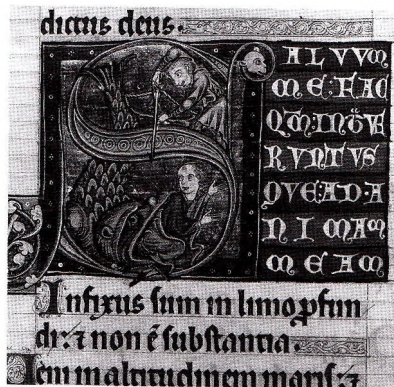 dictus deus.
S ALVVM
ME: FAC
QM
RVNT VS
QVE: AD: A
NIMAM
MEAM
Infixus sum in limo ꝓfun
di: ⁊ non ē substantia.
Veni in altitudinem maris: ⁊